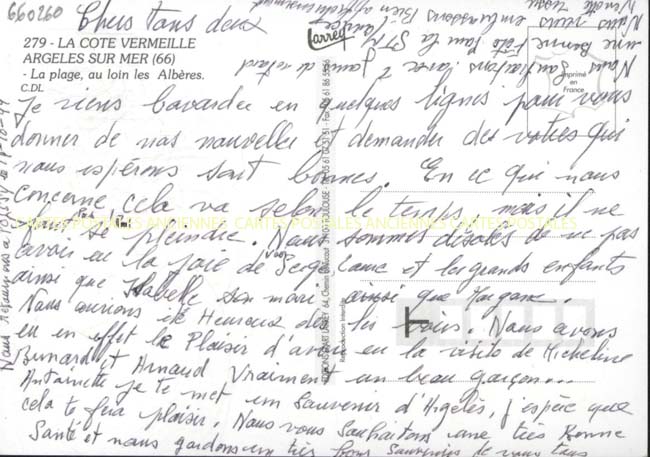 660260
Chers tous deux
279 - LA COTE VERMEILLE
ARGELES SUR MER (66)
- La plage, au loin les Albères.
C.DL
Larrey
Imprimé
en
France
Je viens bavarder en quelques lignes pour vous
donner de nos nouvelles et demander des votres qui
nous espérons sont bonnes. En ce qui nous
concerne cela va selon le temps mais il ne
faut pas se plaindre. Nous sommes désolés de ne pas
avoir eu la joie de voir Serge et les grands enfants
ainsi que Isabelle son mari ainsi que Morgane.
Nous aurions été Heureux de les voir. Nous avons
eu en effet le Plaisir d'avoir eu la visite de Micheline
Bernard et Arnaud Vraiment un beau garçon...
Antoinette je te met un Souvenir d'Argelès, j'espère que
cela te fera plaisir. Nous vous Souhaitons une très Bonne
Santé et nous gardons un très bon Souvenir de vous tous
Nous vous embrassons Bien affectueusement
une Bonne Fête pour la St
Nous Souhaitons avec 2 jours de retard
CARTES POSTALES ANCIENNES CARTES POSTALES ANCIENNES CARTES POSTALES
Reproduction interdite